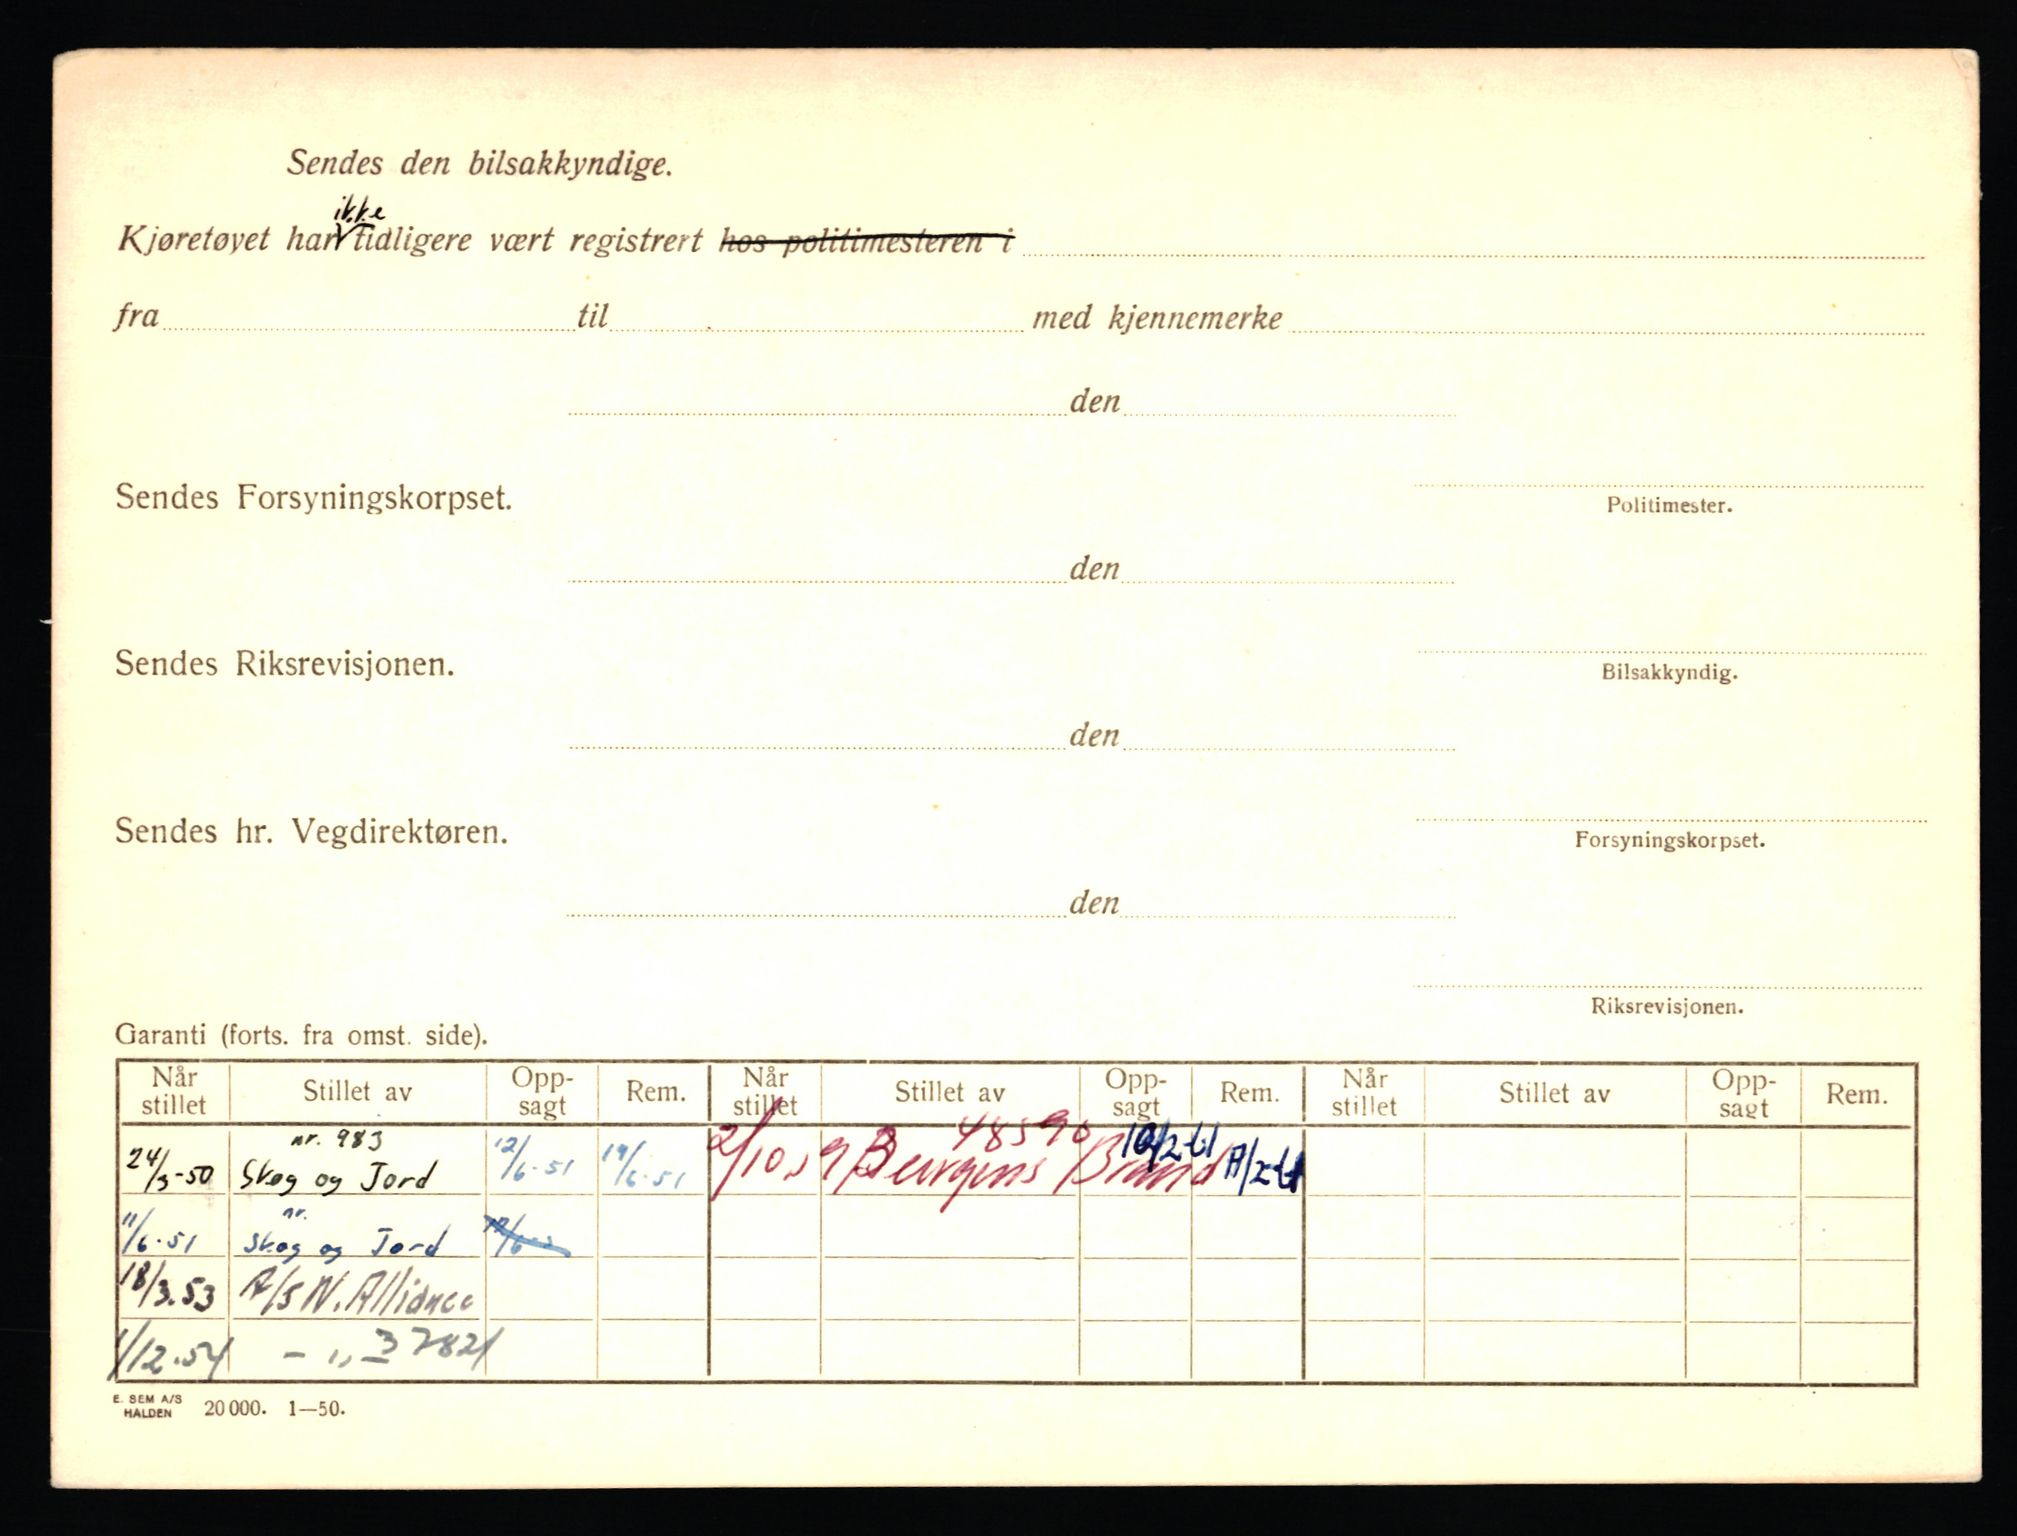 Sendes den bilsakkyndige.
ikke
Kjøretøyet har tidligere vært registrert hos politimesteren i
fra til med kjennemerke
den
Sendes Forsyningskorpset.
Politimester.
den
Sendes Riksrevisjonen.
Bilsakkyndig.
den
Sendes hr. Vegdirektøren.
Forsyningskorpset.
den
Riksrevisjonen.
Garanti (forts. fra omst. side).
Når stillet Stillet av Opp-sagt Rem. Når stillet Stillet av Opp-sagt Rem. Når stillet Stillet av Opp-sagt Rem.
nr. 983 48590
24/3-50 Skog og Jord 12/6-51 19/6-51 2/10 59 Bergens Brand 10/2-61
nr.
11/6-51 Skog og Jord
18/3.53 A/S N. Alliance
1/12.54 – „ – 37821
E. SEM A/S
HALDEN 20 000. 1—50.